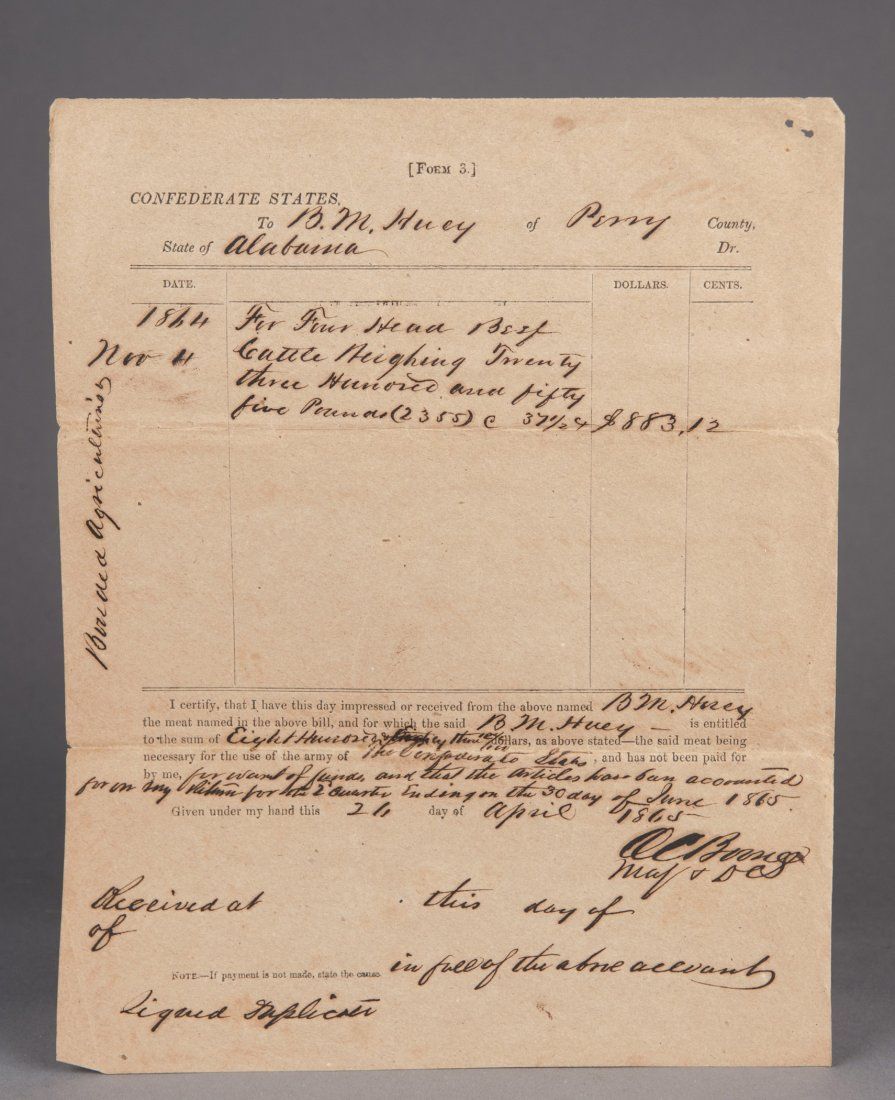 [FORM 3.]
CONFEDERATE STATES,
To B. M. Huey of Perry County,
State of Alabama Dr.
DATE. DOLLARS. CENTS.
1864 For Four Head Beef
Nov 4 Cattle Weighing Twenty
three Hundred and fifty
five Pounds (2355) @ 37 1/2 $883,12
Bonded Agriculturist
I certify, that I have this day impressed or received from the above named B M. Huey
the meat named in the above bill, and for which the said B. M. Huey is entitled
to the sum of Eight Hundred Eighty three 12/100 dollars, as above stated—the said meat being
necessary for the use of the army of the Confederate States, and has not been paid for
by me, for want of funds, and that the articles have ban accounted
for on my Return for the 2 quarter Ending on the 30 day of June 1865.
Given under my hand this 26 day of April 1865
Maj & DCS
Received at this day of
of
NOTE.—If payment is not made, state the cause. in full of the above account
Signed Duplicate